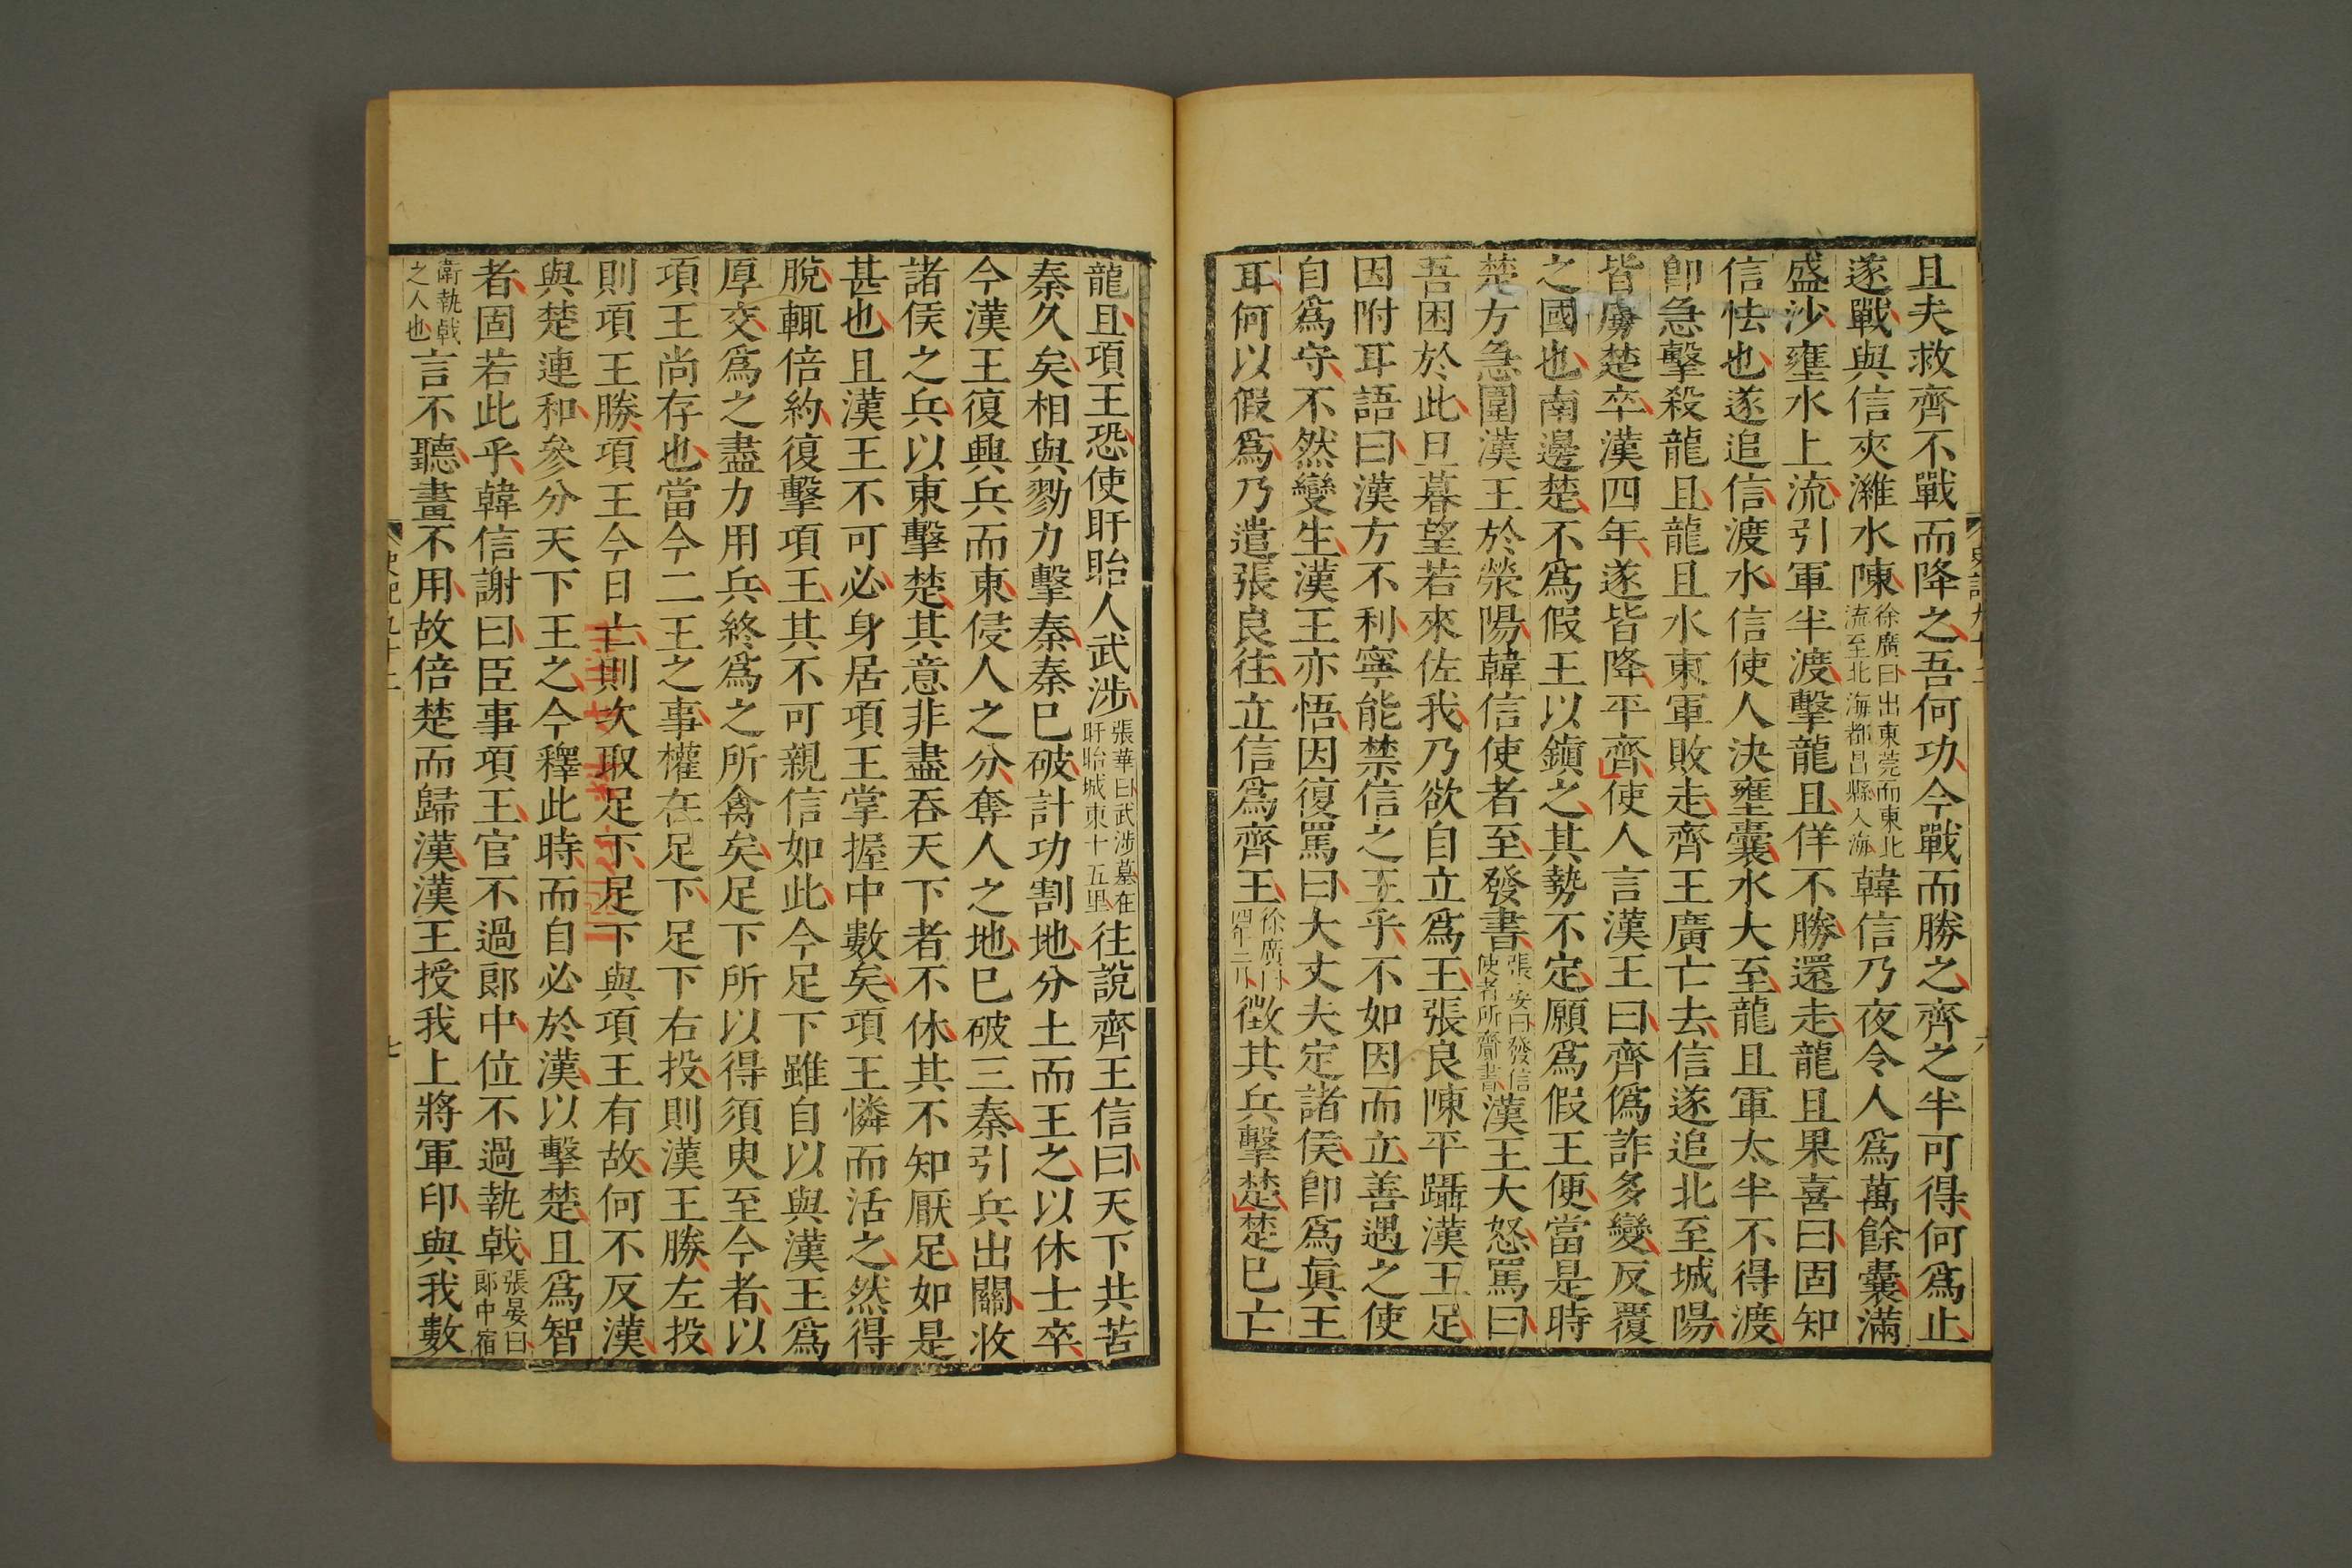 且夫救齊不戰而降之吾何功今戰而勝之齊之半可得何爲止
遂戰與信夾濰水陳徐廣曰出東莞而東北流至北海都昌縣入海韓信乃夜令人爲萬餘囊滿
盛沙壅水上流引軍半渡擊龍且佯不勝還走龍且果喜曰固知
信怯也遂追信渡水信使人決壅囊水大至龍且軍太半不得渡
卽急擊殺龍且龍且水東軍敗走齊王廣亡去信遂追北至城陽
皆虜楚卒漢四年遂皆降平齊使人言漢王曰齊僞詐多變反覆
之國也南邊楚不爲假王以鎭之其勢不定願爲假王便當是時
楚方急圍漢王於滎陽韓信使者至發書張晏曰發信使者所齎書漢王大怒罵曰
吾困於此旦暮望若來佐我乃欲自立爲王張良陳平躡漢王足
因附耳語曰漢方不利寧能禁信之王乎不如因而立善遇之使
自爲守不然變生漢王亦悟因復罵曰大丈夫定諸侯卽爲眞王
耳何以假爲乃遣張良往立信爲齊王徐廣曰四年二月徵其兵擊楚楚已亡
龍且項王恐使盱眙人武涉張華曰武涉墓在盱眙城東十五里往說齊王信曰天下共苦
秦久矣相與勠力擊秦秦已破計功割地分土而王之以休士卒
今漢王復興兵而東侵人之分奪人之地已破三秦引兵出關收
諸侯之兵以東擊楚其意非盡吞天下者不休其不知厭足如是
甚也且漢王不可必身居項王掌握中數矣項王憐而活之然得
脫輒倍約復擊項王其不可親信如此今足下雖自以與漢王爲
厚交爲之盡力用兵終爲之所禽矣足下所以得須臾至今者以
項王尚存也當今二王之事權在足下足下右投則漢王勝左投
則項王勝項王今日亡則次取足下足下與項王有故何不反漢
與楚連和參分天下王之今釋此時而自必於漢以擊楚且爲智
者固若此乎韓信謝曰臣事項王官不過郎中位不過執戟張晏曰郎中宿
衛執戟之人也言不聽畫不用故倍楚而歸漢漢王授我上將軍印與我數
史記九十二
七